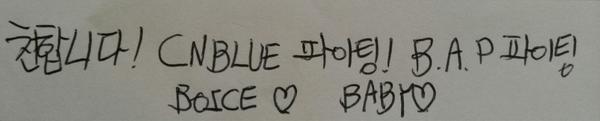 친합니다! CNBLUE 파이팅! B.A.P 파이팅
BOICE ♡ BABY♡